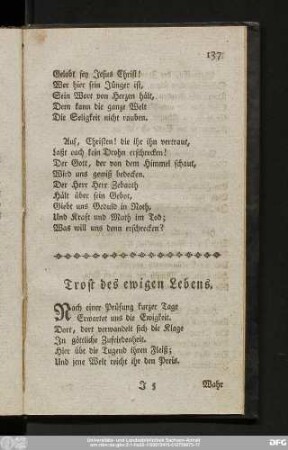 137
Gelobt sey Jesus Christ!
Wer hier sein Jünger ist,
Sein Wort von Herzen hält,
Dem kann die ganze Welt
Die Seligkeit nicht rauben.
Auf, Christen! die ihr ihm vertraut,
Laßt euch kein Drohn erschrecken!
Der Gott, der von dem Himmel schaut,
Wird uns gewiß bedecken.
Der Herr Herr Zebaoth
Hält über sein Gebot,
Giebt uns Geduld in Noth,
Und Kraft und Muth im Tod;
Was will uns denn erschrecken?
Trost des ewigen Lebens.
Nach einer Prüfung kurzer Tage
Erwartet uns die Ewigkeit.
Dort, dort verwandelt sich die Klage
In göttliche Zufriedenheit.
Hier übt die Tugend ihren Fleiß;
Und jene Welt reicht ihr den Preis.
J 5 Wahr
Universitäts- und Landesbibliothek Sachsen-Anhalt
DFG